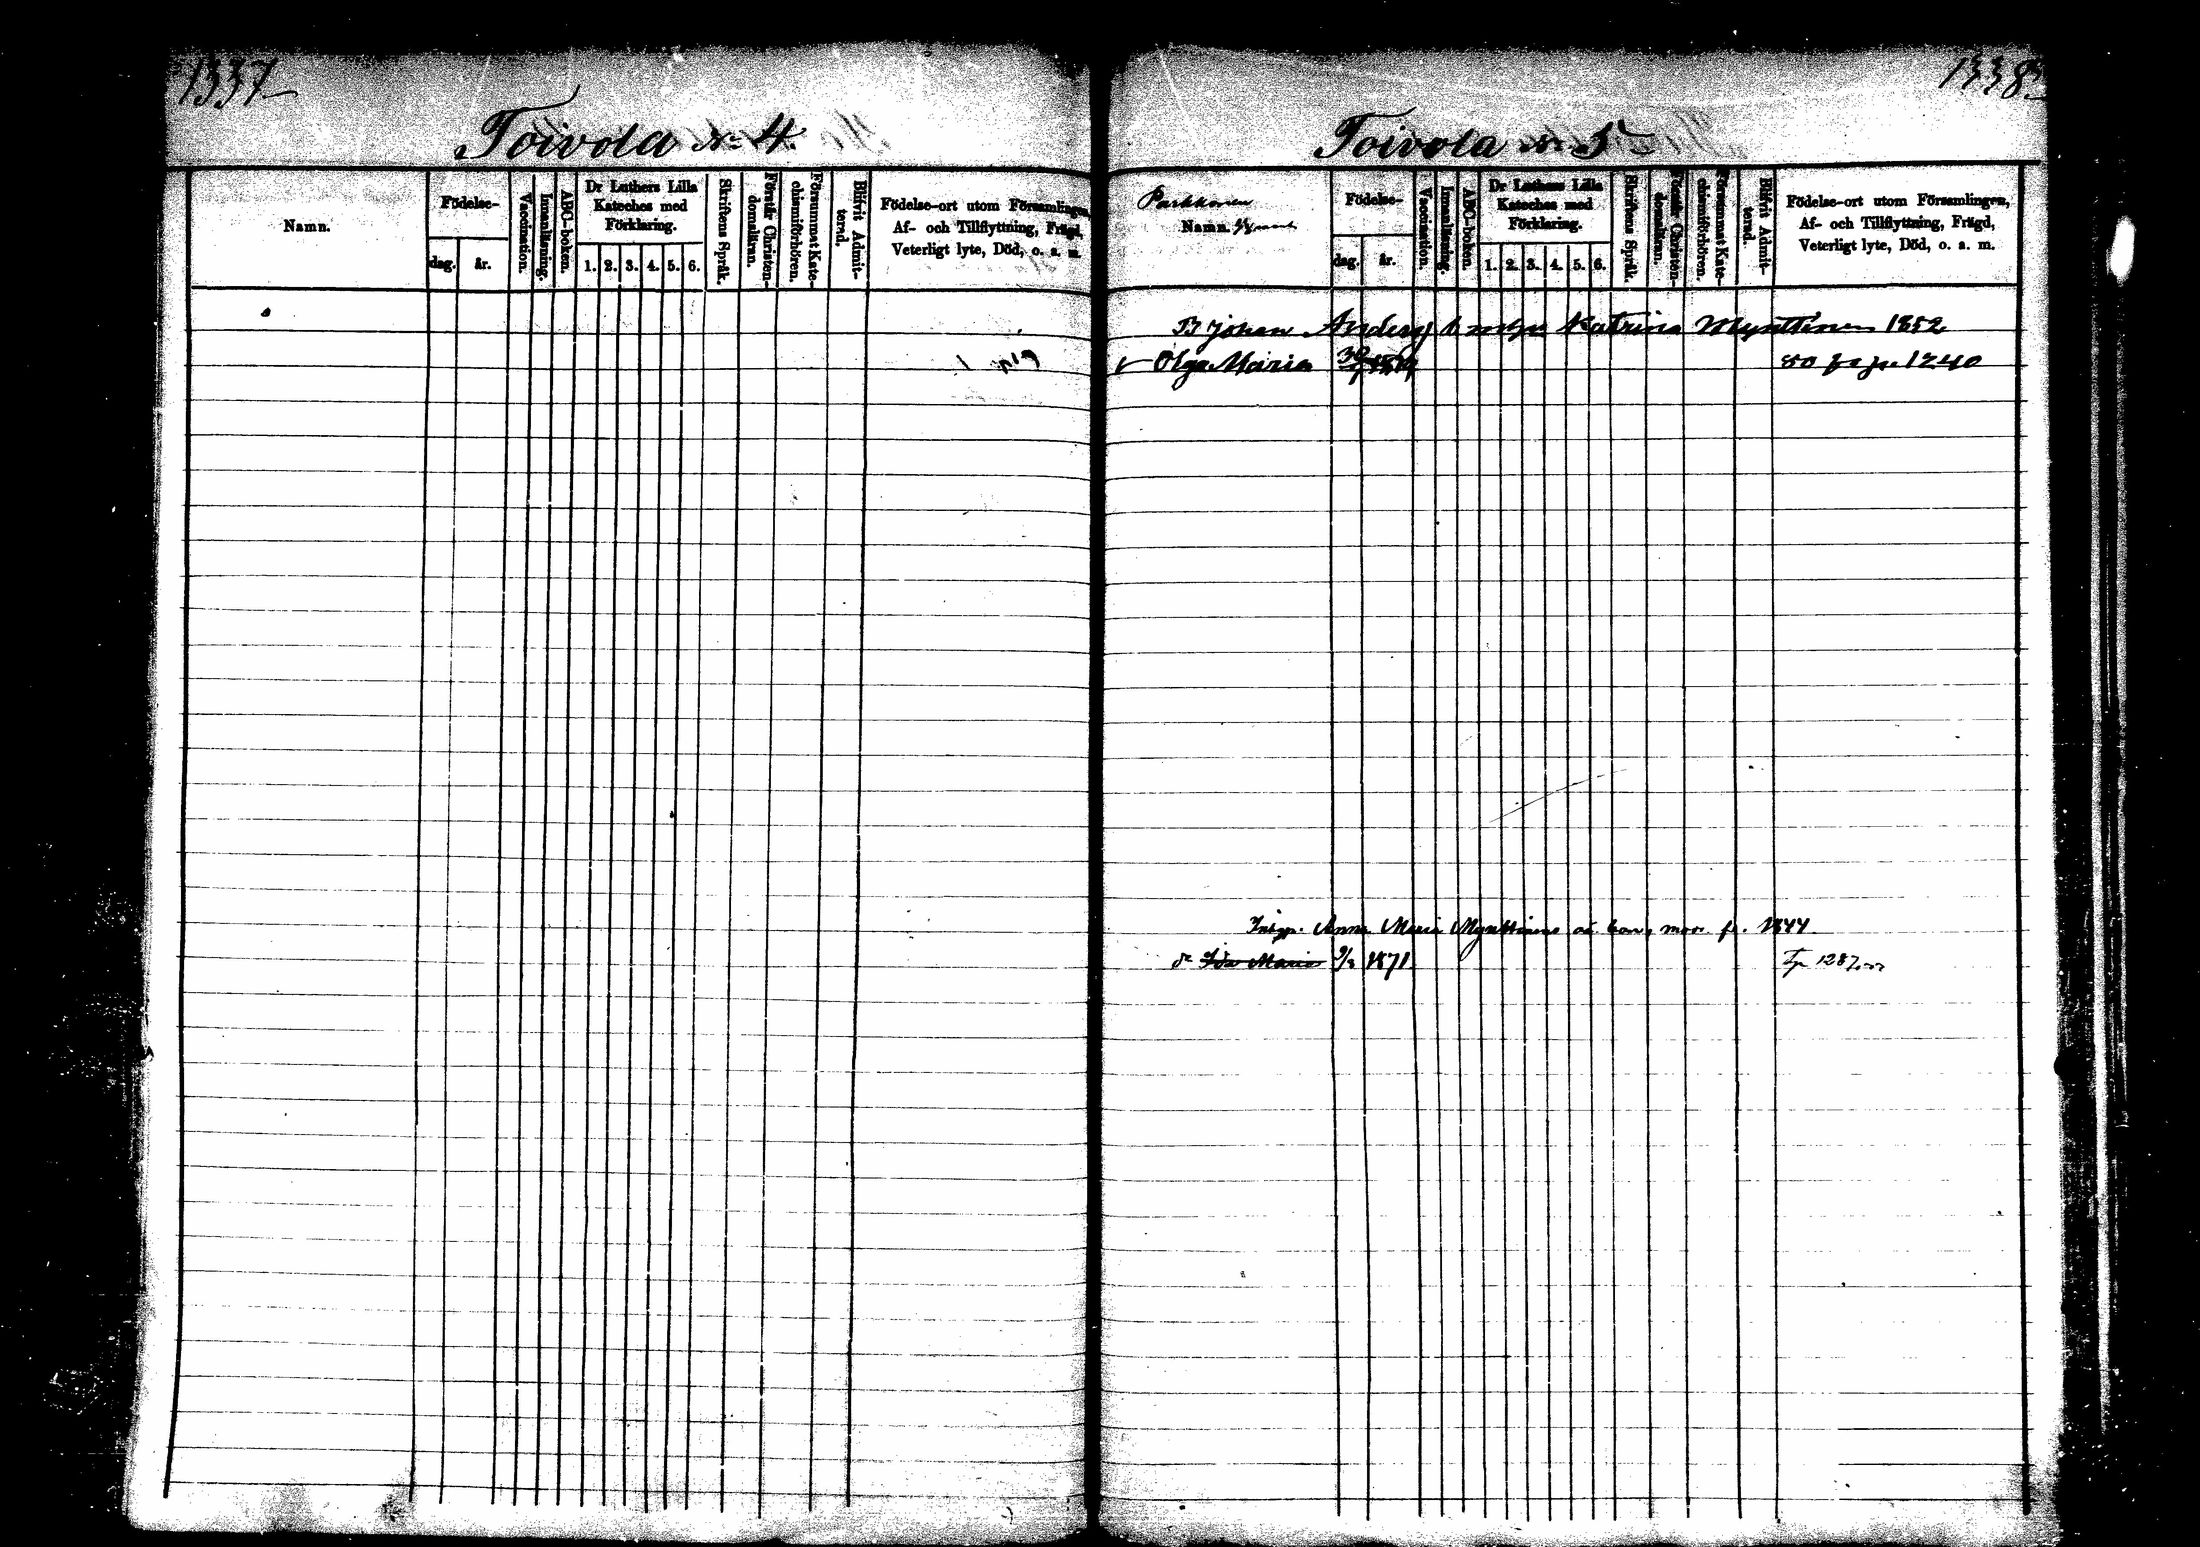 1337
Toivola № 4.
Namn.
Födelse-
dag.
år.
Vaccination.
Innanläsning.
ABC-boken.
Dr Luthers Lilla
Kateches med
Förklaring.
1. 2. 3. 4. 5. 6.
Skriftens Språk.
Förstår Christen-
domsläran.
Försummat Kate-
chismiförhören.
Blifvit Admit-
terad.
Födelse-ort utom Församlingen,
Af- och Tillflyttning, Frägd,
Veterligt lyte, Död, o. s. m.
1338
Toivola № 5
Parkkonen
Namn.
Födelse-
dag.
år.
Vaccination.
Innanläsning.
ABC-boken.
Dr Luthers Lilla
Kateches med
Förklaring.
1. 2. 3. 4. 5. 6.
Skriftens Språk.
Förstår Christen-
domsläran.
Försummat Kate-
chismiförhören.
Blifvit Admit-
terad.
Födelse-ort utom Församlingen,
Af- och Tillflyttning, Frägd,
Veterligt lyte, Död, o. s. m.
Johan Anders Katrina Mynttinen 1852
Olga Maria 30 80 1240
Anna Maria Mynttinens 1844
Ida Maria 9/3 1871